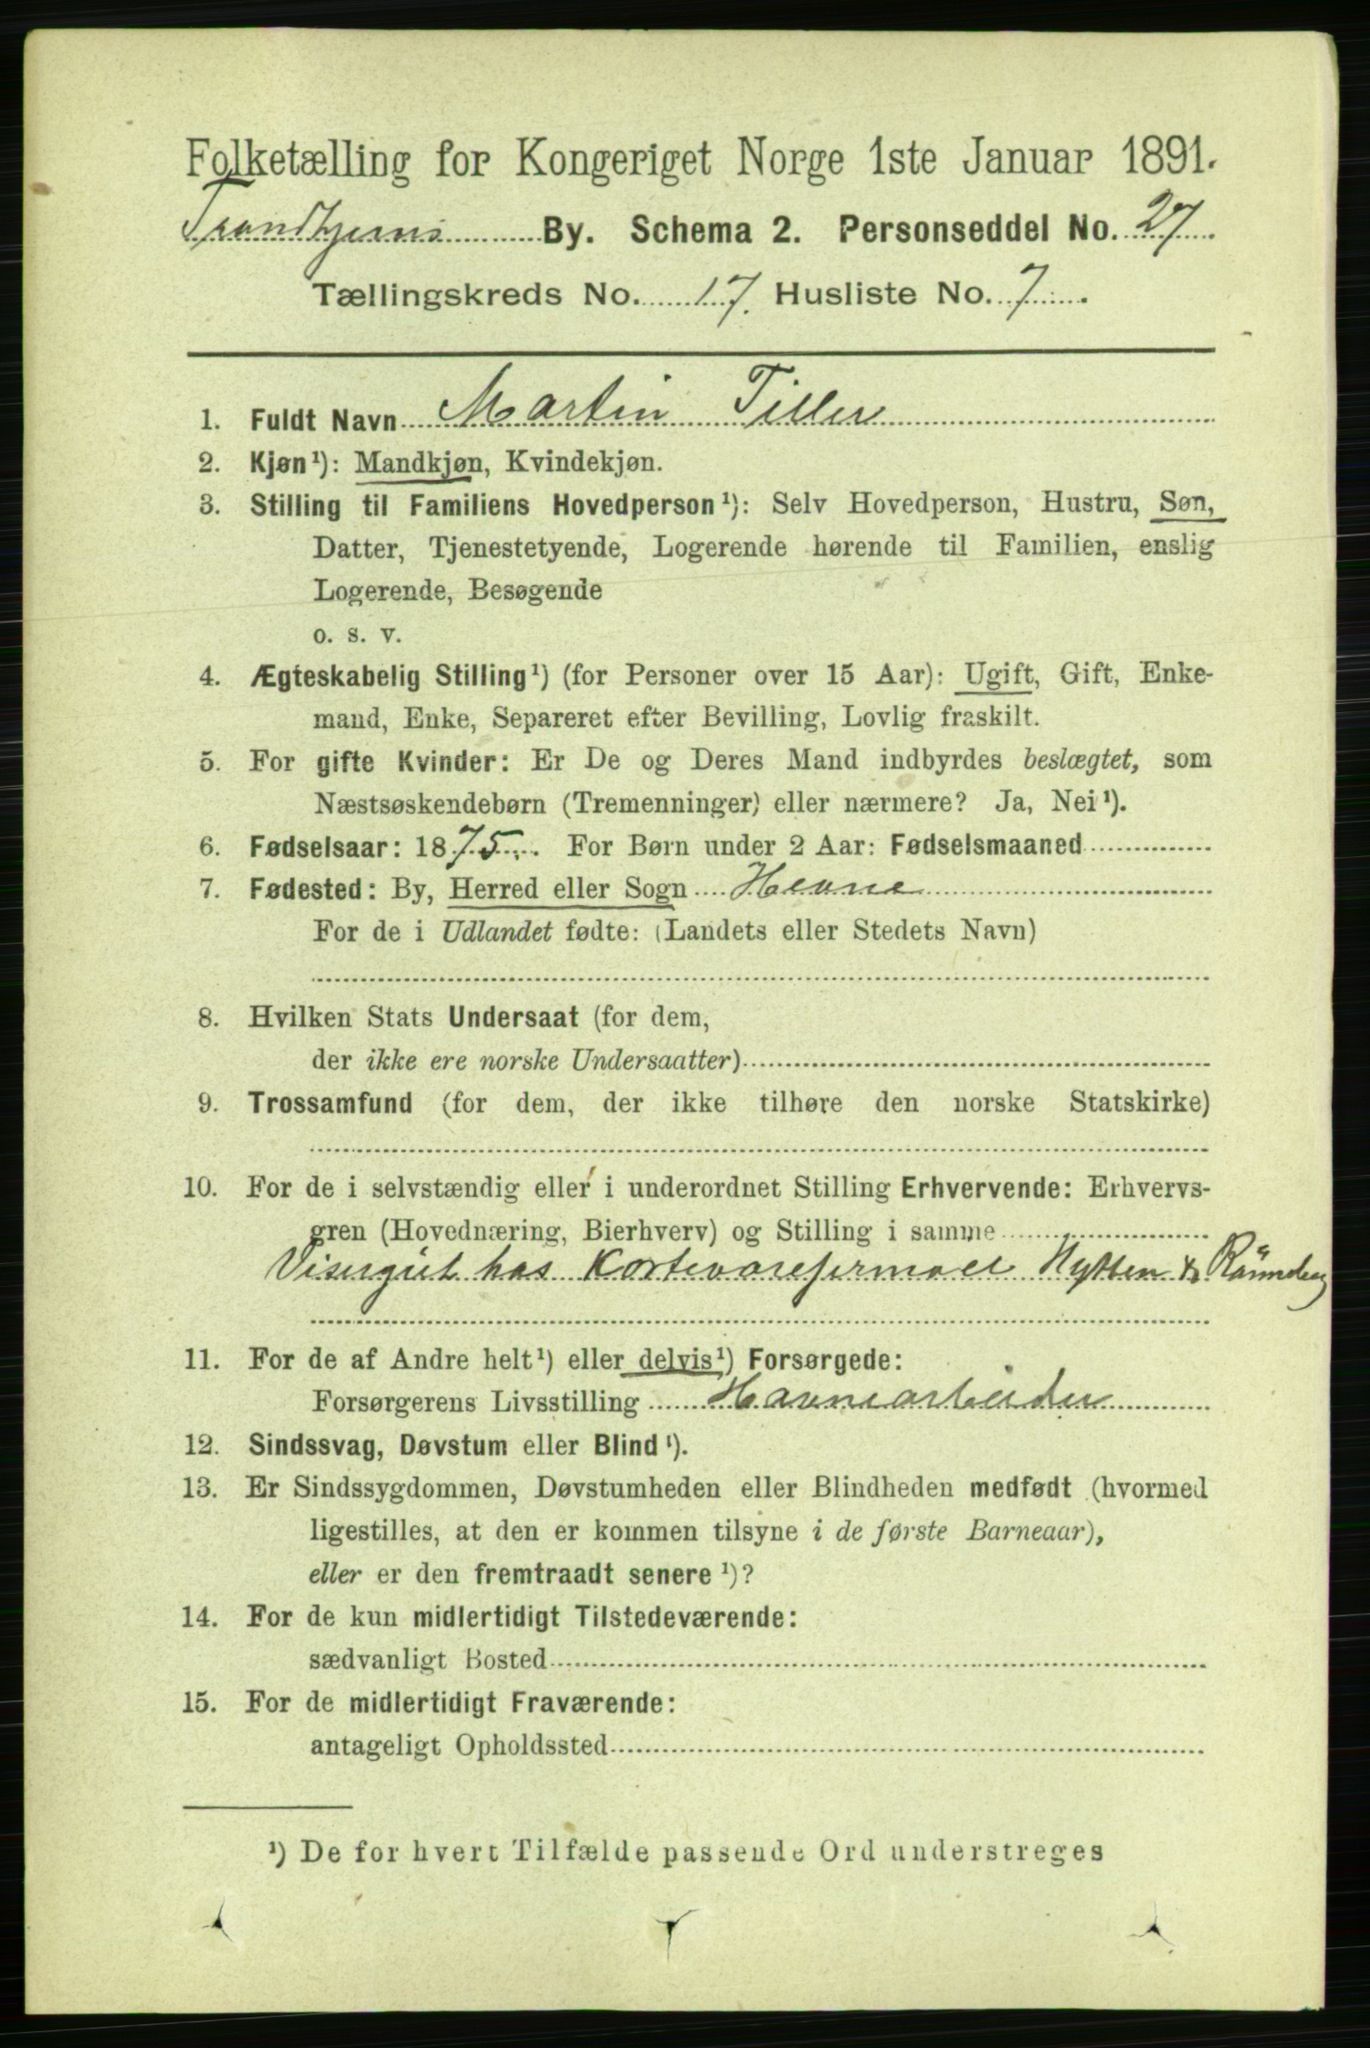 Folketælling for Kongeriget Norge 1ste Januar 1891.
Trondhjems By. Schema 2. Personseddel No. 27
Tællingskreds No. 17. Husliste No. 7.
1. Fuldt Navn Martin Tiller
2. Kjøn¹): Mandkjøn, Kvindekjøn.
3. Stilling til Familiens Hovedperson¹): Selv Hovedperson, Hustru, Søn,
Datter, Tjenestetyende, Logerende hørende til Familien, enslig
Logerende, Besøgende
o. s. v.
4. Ægteskabelig Stilling¹) (for Personer over 15 Aar): Ugift, Gift, Enke-
mand, Enke, Separeret efter Bevilling, Lovlig fraskilt.
5. For gifte Kvinder: Er De og Deres Mand indbyrdes beslægtet, som
Næstsøskendebørn (Tremenninger) eller nærmere? Ja, Nei¹).
6. Fødselsaar: 1875. For Børn under 2 Aar: Fødselsmaaned
7. Fødested: By, Herred eller Sogn Hevne
For de i Udlandet fødte: (Landets eller Stedets Navn)
8. Hvilken Stats Undersaat (for dem,
der ikke ere norske Undersaatter)
9. Trossamfund (for dem, der ikke tilhøre den norske Statskirke)
10. For de i selvstændig eller i underordnet Stilling Erhvervende: Erhvervs-
gren (Hovednæring, Bierhverv) og Stilling i samme
Visergut hos Kortevarefirmaet &
11. For de af Andre helt¹) eller delvis¹) Forsørgede:
Forsørgerens Livsstilling Havnearbeider
12. Sindssvag, Døvstum eller Blind¹).
13. Er Sindssygdommen, Døvstumheden eller Blindheden medfødt (hvormed
ligestilles, at den er kommen tilsyne i de første Barneaar),
eller er den fremtraadt senere¹)?
14. For de kun midlertidigt Tilstedeværende:
sædvanligt Bosted
15. For de midlertidigt Fraværende:
antageligt Opholdssted
¹) De for hvert Tilfælde passende Ord understreges